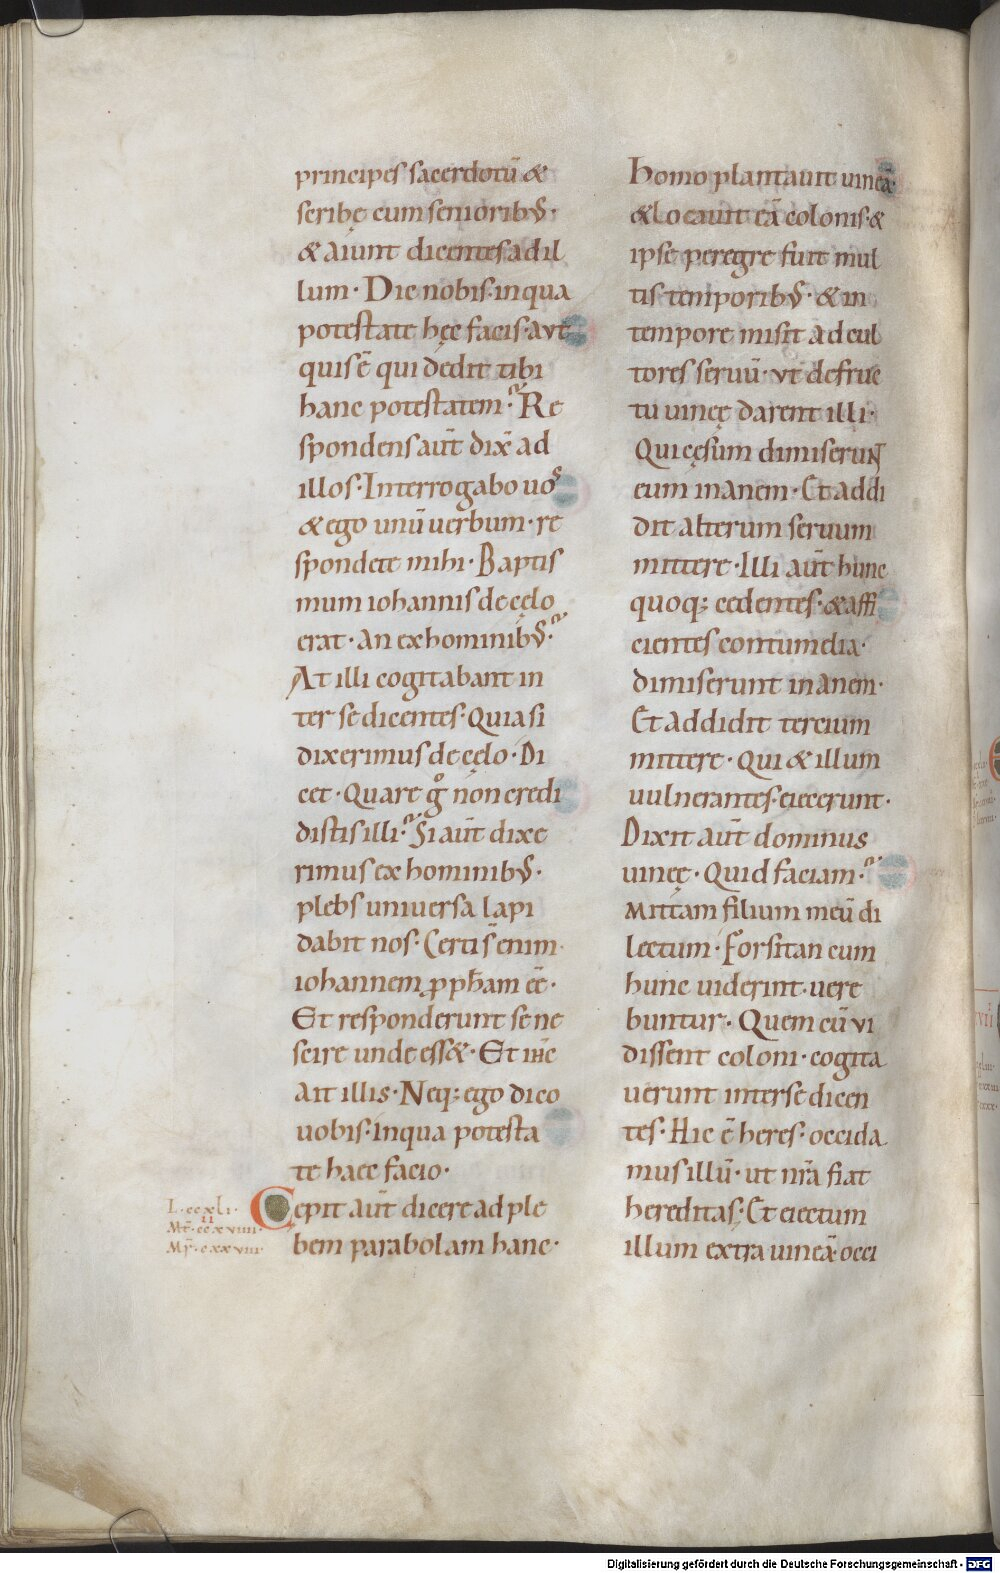 principes sacerdotū &
scribę cum senioribꝰ·
& aiunt dicentes ad il
lum· Dic nobis· in qua
potestate hęc facis· aut
quis ē qui dedit tibi
hanc potestatem· Re
spondens aūt dix̄ ad
illos· Interrogabo uos
& ego unū uerbum· re
spondete mihi· Baptis
mum iohannis de cęlo
erat· an ex hominibꝰ·
At illi cogitabant in
ter se dicentes· Quia si
dixerimus de cęlo· Di
cet· Quare g̊ non credi
distis illi· Si aūt dixe
rimus ex hominibꝰ·
plebs uniuersa lapi
dabit nos· Certi s̄ enim·
iohannem ꝓph̄am eē·
Et responderunt se ne
scire unde ess&· Et ih̄c
ait illis· Neq; ego dico
uobis· in qua potesta
te haec facio·
L· ccxli·
Mt̄· ccxviiii·
II
Mr̄· cxxviii·
Cepit aūt dicere ad ple
bem parabolam hanc·
Homo plantauit uineā
& locauit eā colonis· &
ipse peregre fuit mul
tis temporibꝰ· & in
tempore misit ad cul
tores seruū· ut de fruc
tu uineę darent illi·
Qui cęsum dimiserunt
eum inanem· Et addi
dit alterum seruum
mittere· Illi aūt hunc
quoq; cedentes· & affi
cientes contumelia·
dimiserunt inanem·
Et addidit tercium
mittere· Qui & illum
uulnerantes· eiecerunt·
Dixit aūt dominus
uineę· Quid faciam·
Mittam filium meū di
lectum· Forsitan cum
hunc uiderint· uere
buntur· Quem cū vi
dissent coloni· cogita
uerunt inter se dicen
tes· Hic ē heres· occida
mus illū· ut nr̄a fiat
hereditas· Et eiectum
illum extra uineā· occi
Digitalisierung gefördert durch die Deutsche Forschungsgemeinschaft - DFG